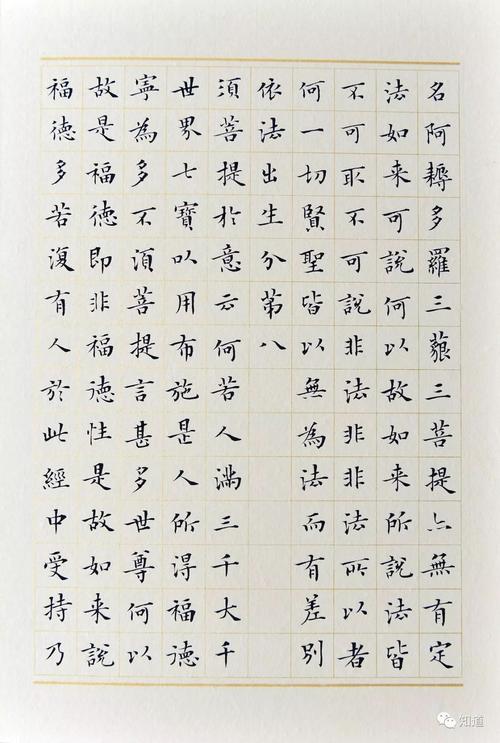 名阿耨多羅三藐三菩提亦無有定
法如来可說何以故如来所說法皆
不可取不可說非法非非法所以者
何一切賢聖皆以無為法而有差别
依法出生分第八
須菩提於意云何若人滿三千大千
世界七寶以用布施是人所得福德
寧為多不須菩提言甚多世尊何以
故是福德即非福德性是故如来說
福德多若復有人於此經中受持乃
知道